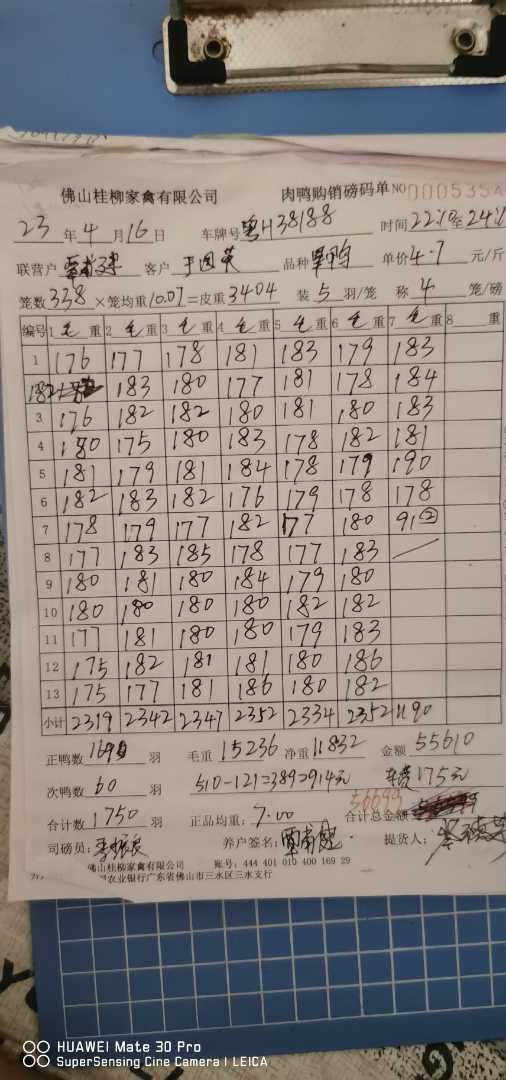 佛山桂柳家禽有限公司 肉鸭购销磅码单 NO 000535A
23 年 4 月 16 日 车牌号 粤H38188 时间 22:10 至 24:
联营户 客户 品种 单价 4.7 元/斤
笼数 338 ×笼均重 10.07 =皮重 3404 装 5 羽/笼 称 4 笼/磅
编号 1 毛 重 2 毛 重 3 毛 重 4 毛 重 5 毛 重 6 毛 重 7 毛 重 8 重
1 176 177 178 181 183 179 183
182 183 180 177 181 178 184
3 176 182 182 180 181 180 183
4 180 175 180 183 178 182 181
5 181 179 181 184 178 179 190
6 182 183 182 176 179 178 178
7 178 179 177 182 177 180 91②
8 177 183 185 178 177 183
9 180 181 180 184 179 180
10 180 180 180 180 182 182
11 177 181 180 180 179 183
12 175 182 181 181 180 186
13 175 177 181 186 180 182
小计 2319 2342 2347 2352 2334 2352 1190
正鸭数 1690 羽 毛重 15236 净重 11832 金额 55610
次鸭数 60 羽 510-121=389=914元 车费175元
合计数 1750 羽 正品均重: 7.00 合计总金额 56699
司磅员: 养户签名: 提货人:
佛山桂柳家禽有限公司 账号: 444 401 010 400 169 29
农业银行广东省佛山市三水区三水支行
HUAWEI Mate 30 Pro
SuperSensing Cine Camera | LEICA